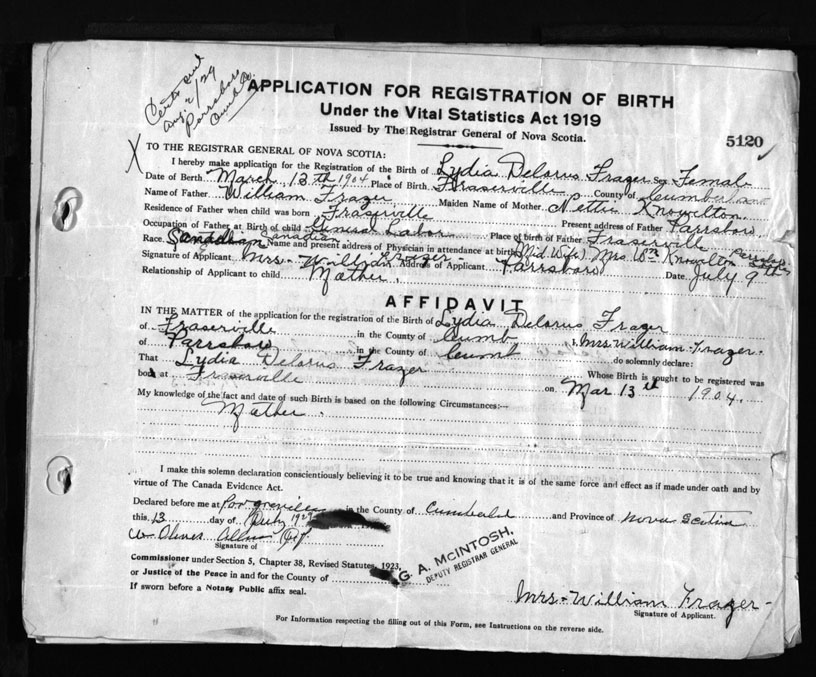 Certs sent
Aug 2/29
Parrsboro
Cumb Co.
APPLICATION FOR REGISTRATION OF BIRTH
Under the Vital Statistics Act 1919
Issued by The Registrar General of Nova Scotia.
5120
X TO THE REGISTRAR GENERAL OF NOVA SCOTIA:
I hereby make application for the Registration of the Birth of Lydia Delorus Frazer Sex Female
Date of Birth March 13th 1904 Place of Birth Fraserville County of Cumberland
Name of Father William Frazer Maiden Name of Mother Nettie Knowlton
Residence of Father when child was born Fraserville Present address of Father Parrsboro.
Occupation of Father at Birth of child Labor Place of birth of Father Fraserville
Race. Canadian Canadian Name and present address of Physician in attendance at birth (Mid Wife) Mrs Wm Knowlton Parrsboro
Signature of Applicant Mrs- William Frazer- Address of Applicant Parrsboro Date July 9th
Relationship of Applicant to child Mother.
AFFIDAVIT
IN THE MATTER of the application for the registration of the Birth of Lydia Delorus Frazer
of Fraserville in the County of Cumb I, Mrs. William-Frazer-
of Parrsboro in the County of Cumb do solemnly declare:
That Lydia Delorus Frazer Whose Birth is sought to be registered was
born at Fraserville on Mar 13th 1904.
My knowledge of the fact and date of such Birth is based on the following Circumstances:—
Mother.
I make this solemn declaration conscientiously believing it to be true and knowing that it is of the same force and effect as if made under oath and by
virtue of The Canada Evidence Act.
Declared before me at Port Greville in the County of Cumberland and Province of Nova Scotia
this 13 day of July 1929
Signature of
Commissioner under Section 5, Chapter 38, Revised Statutes, 1923,
or Justice of the Peace in and for the County of
If sworn before a Notary Public affix seal.
G. A. McINTOSH,
DEPUTY REGISTRAR GENERAL
Mrs-William Frazer-
Signature of Applicant.
For Information respecting the filling out of this Form, see Instructions on the reverse side.